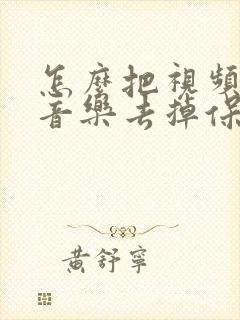 怎麼把視頻
音樂去掉保
黃舒寧